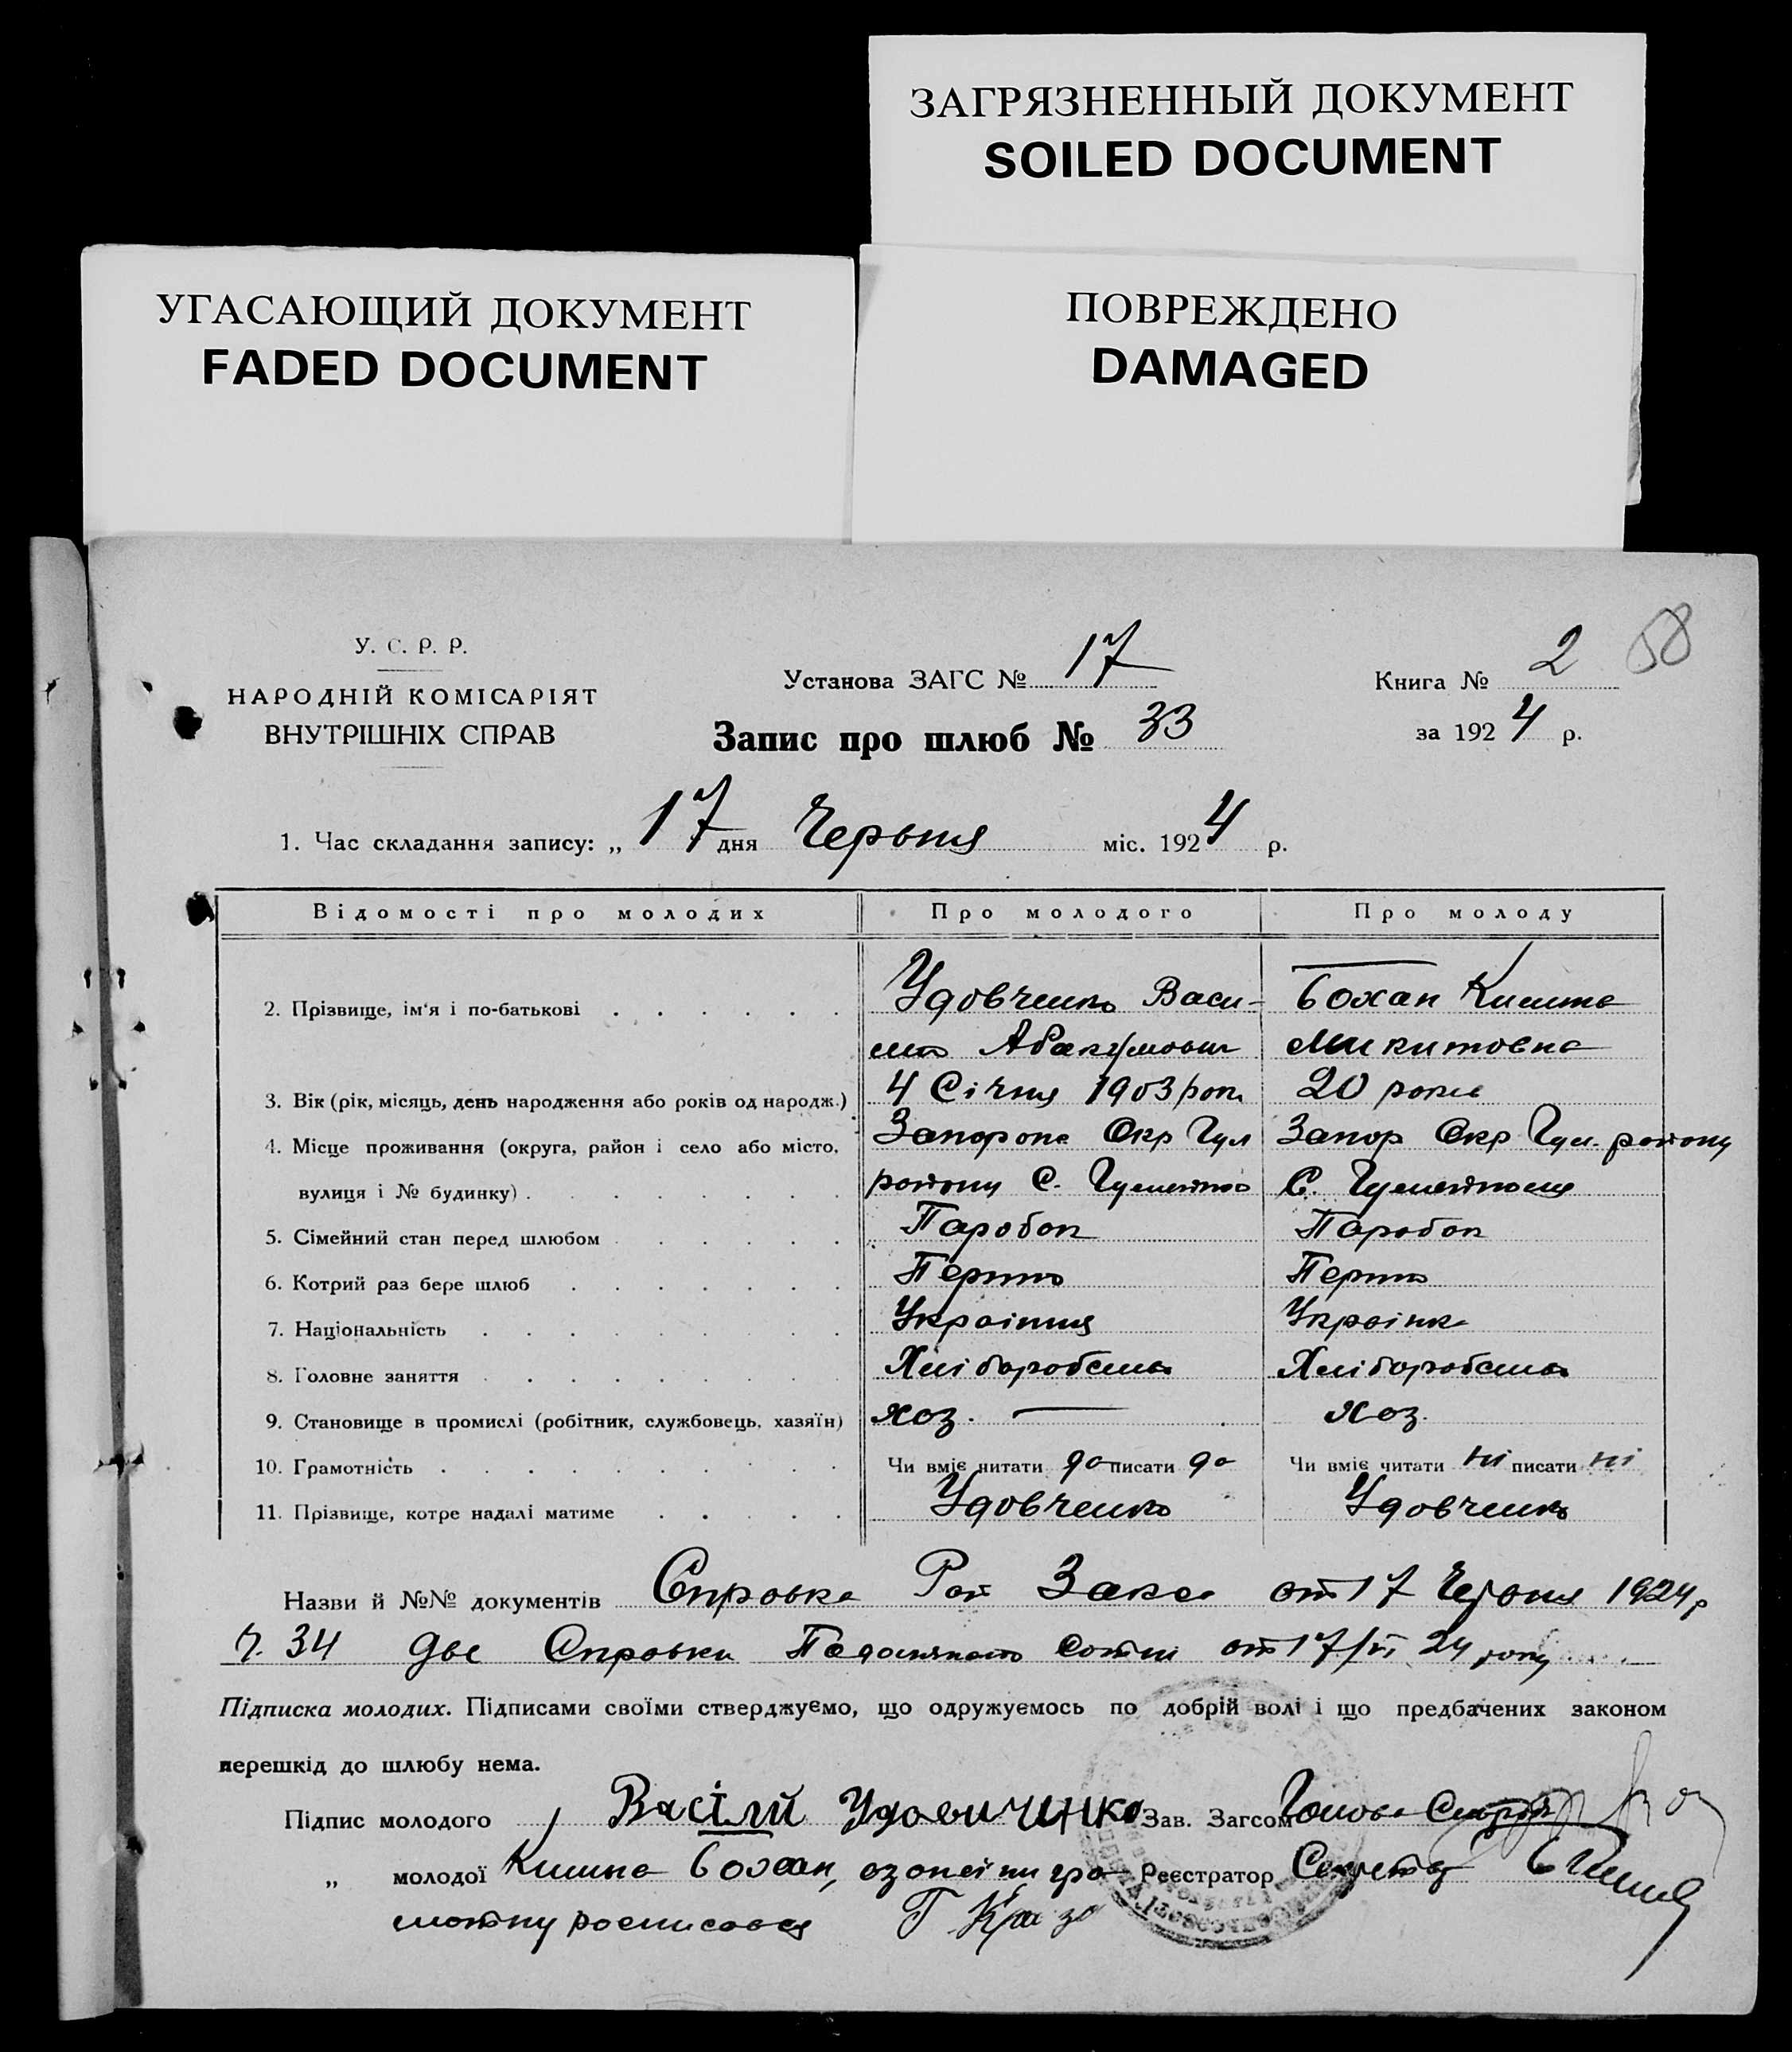 ЗАГРЯЗНЕННЫЙ ДОКУМЕНТ
SOILED DOCUMENT
УГАСАЮЩИЙ ДОКУМЕНТ
FADED DOCUMENT
ПОВРЕЖДЕНО
DAMAGED
У. С. Р. Р.
НАРОДНІЙ КОМІСАРІЯТ
ВНУТРІШНІХ СПРАВ
Установа ЗАГС № 17
Запис про шлюб № 33
Книга № 2 58
за 1924 р.
1. Час складання запису: „ 17 дня Червня міс. 1924 р.
Відомості про молодих Про молодого Про молоду
2. Прізвище, ім'я і по-батькові Удовченко Васи- Бохан
Абакумович Микитовна
3. Вік (рік, місяць, день народження або років од народж.) 4 Січня 1903 рок 20 років
4. Місце проживання (округа, район і село або місто, Запорож Окр Гул Запор Окр Гул. району
вулиця і № будинку) району С. С.
5. Сімейний стан перед шлюбом Паробок Паробок
6. Котрий раз бере шлюб
7. Національність Українця Українка
8. Головне заняття Хліборобство Хліборобство
9. Становище в промислі (робітник, службовець, хазяїн) хоз. — хоз.
10. Грамотність Чи вміє читати да писати да Чи вміє читати ні писати ні
11. Прізвище, котре надалі матиме Удовченко Удовченко
Назви й №№ документів Справка Заг­са от 17 Червня 1924 р
ч. 34 две Справки от 17/VI 24 року
Підписка молодих. Підписами своїми стверджуємо, що одружуємось по добрій волі і що предбачених законом
перешкід до шлюбу нема.
Підпис молодого Васілій Удовиченко Зав. Загсом Голова
„ молодої Бохан, Реєстратор Секретар
росписався